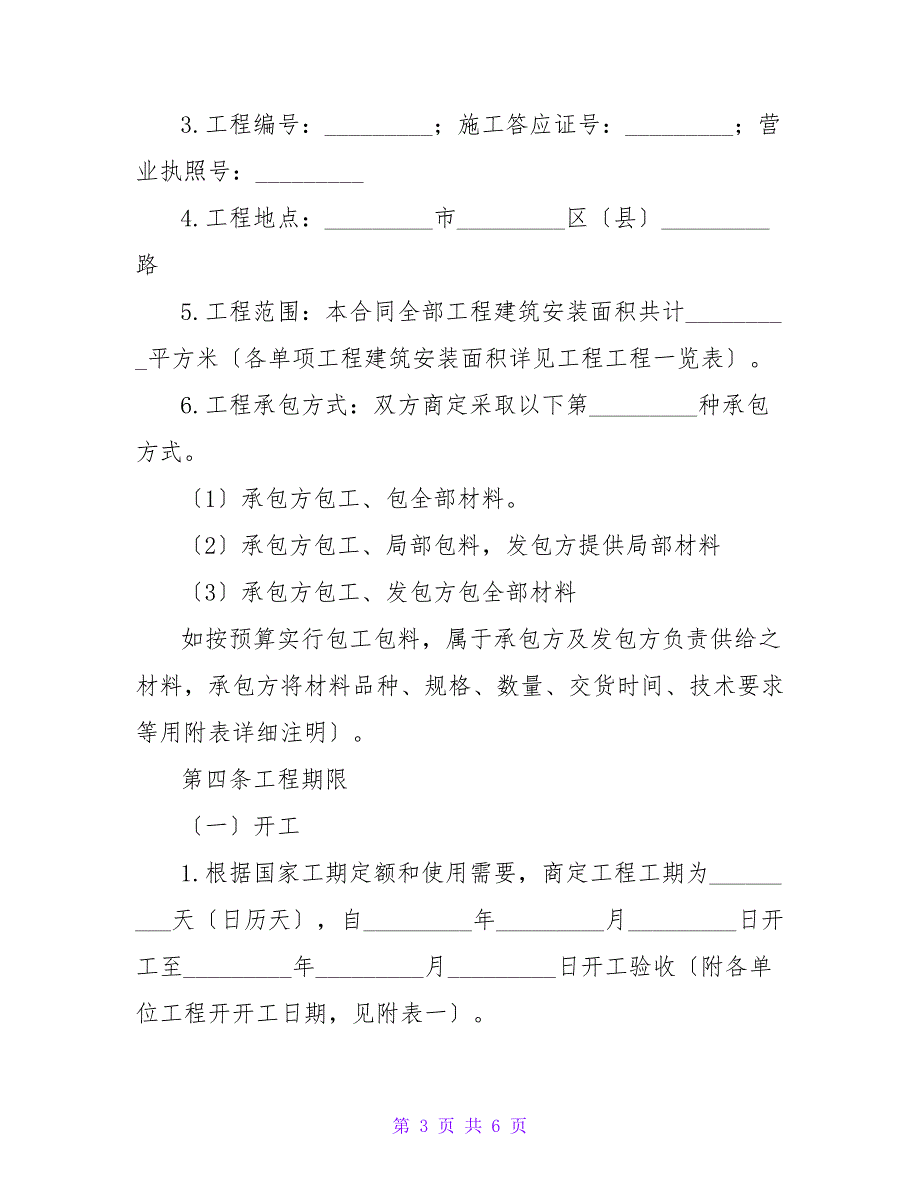 3.工程编号：_________；施工答应证号：_________；营
业执照号：_________
4.工程地点：_________市_________区〔县〕_________
路
5.工程范围：本合同全部工程建筑安装面积共计________
_平方米〔各单项工程建筑安装面积详见工程工程一览表〕。
6.工程承包方式：双方商定采取以下第_________种承包
方式。
〔1〕承包方包工、包全部材料。
〔2〕承包方包工、局部包料，发包方提供局部材料
〔3〕承包方包工、发包方包全部材料
如按预算实行包工包料，属于承包方及发包方负责供给之
材料，承包方将材料品种、规格、数量、交货时间、技术要求
等用附表详细注明〕。
第四条工程期限
〔一〕开工
1.根据国家工期定额和使用需要，商定工程工期为______
___天〔日历天〕，自_________年_________月_________日开
工至_________年_________月_________日开工验收〔附各单
位工程开开工日期，见附表一〕。
第 3 页 共 6 页